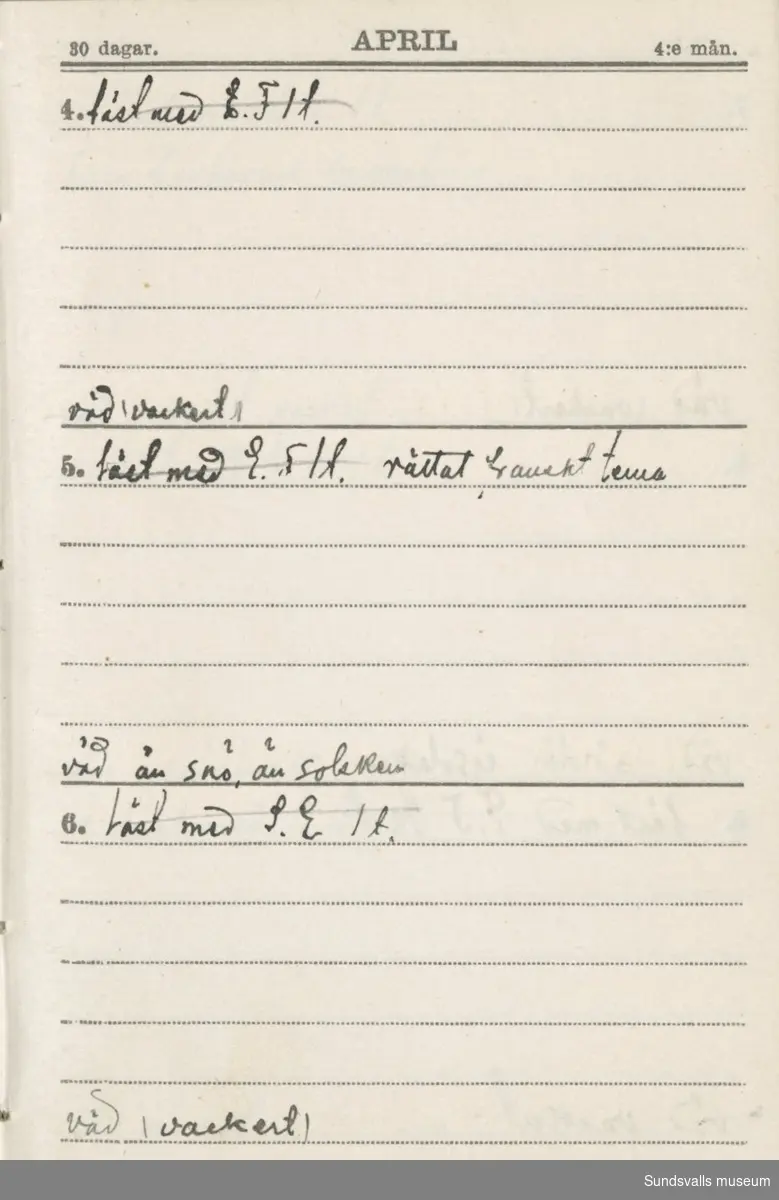 30 dagar. APRIL 4:e mån.
4. läst med E. F 1 t.
väd (vackert)
5. läst med E. F 1 t. rättat franskt tema
väd än snö, än solsken
6. läst med S. E 1 t.
väd (vackert)
Sundsvalls museum